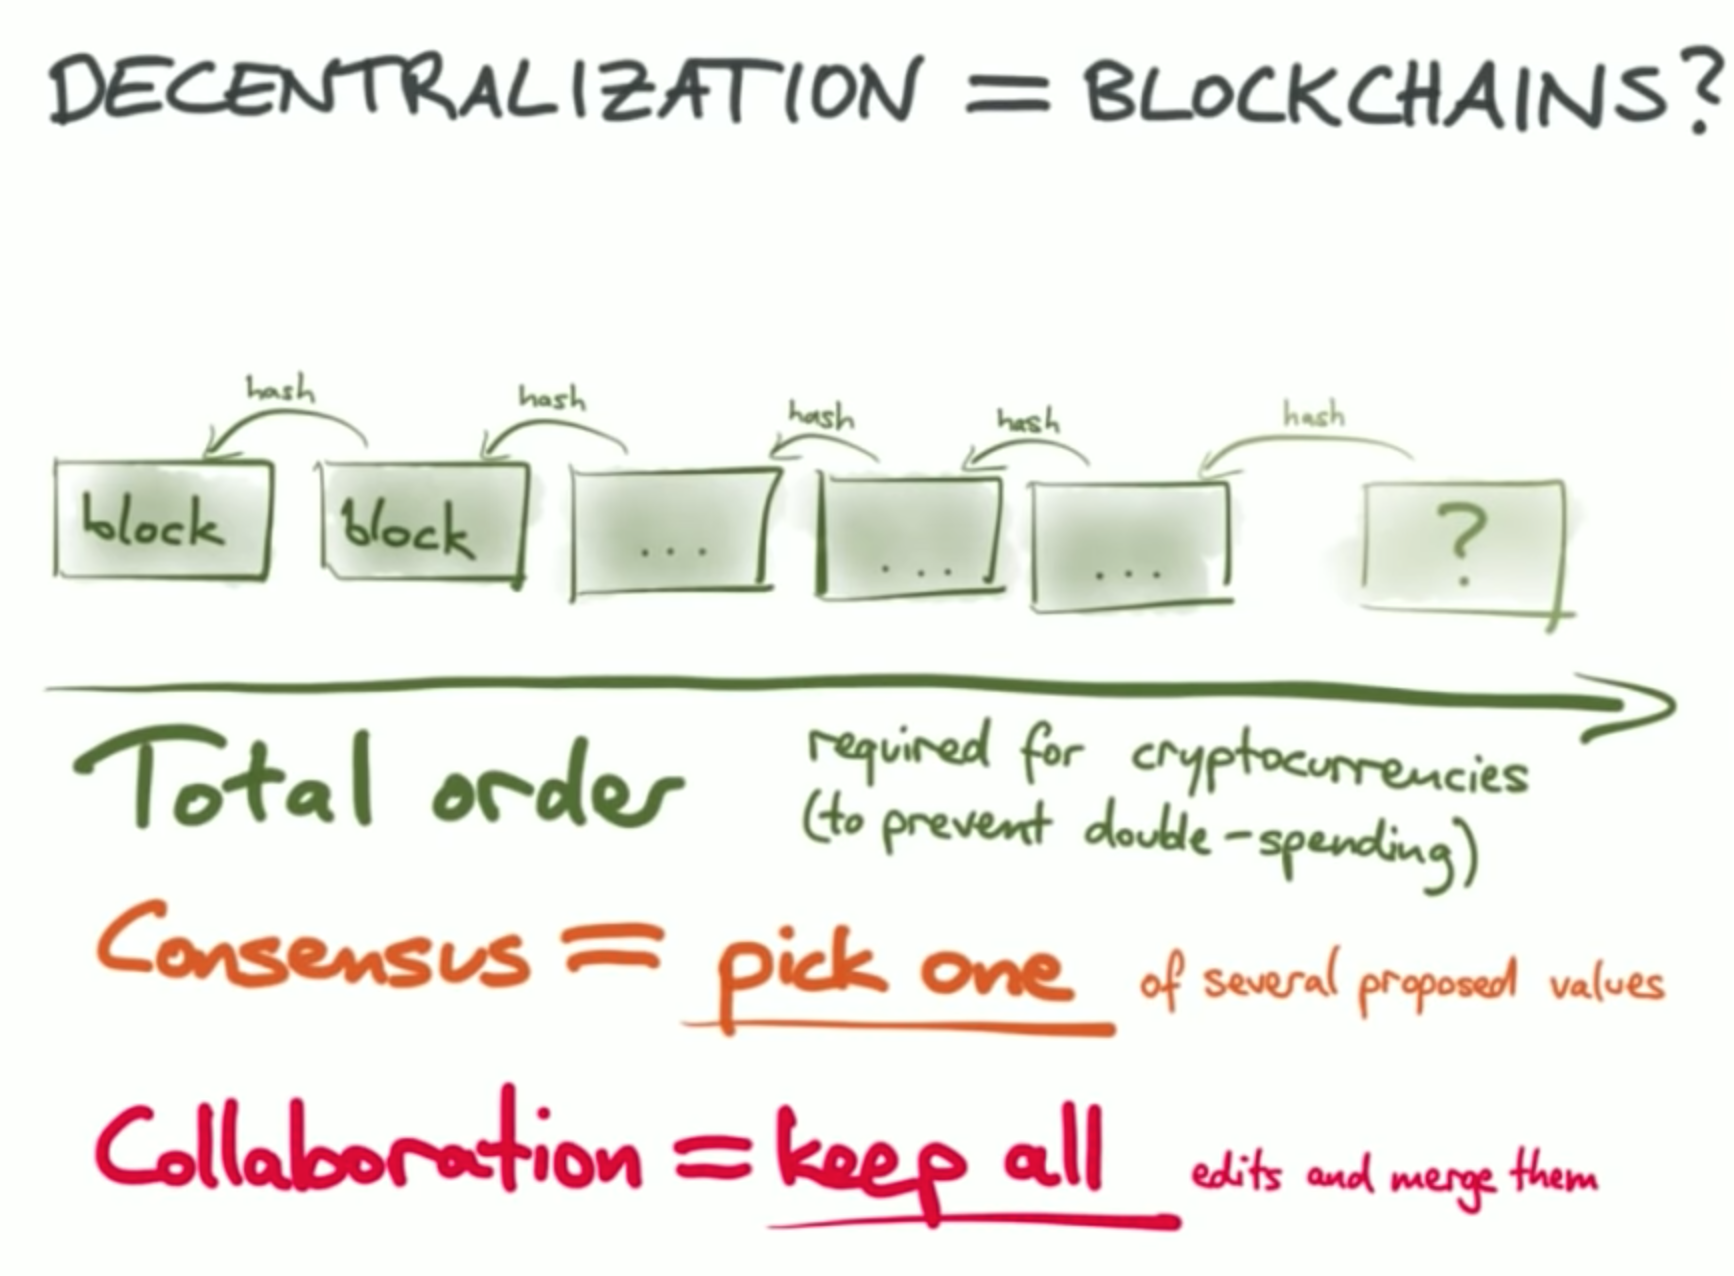 DECENTRALIZATION = BLOCKCHAINS?
hash hash hash hash hash
block block ... ... ... ?
Total order
required for cryptocurrencies
(to prevent double-spending)
Consensus = pick one of several proposed values
Collaboration = keep all edits and merge them